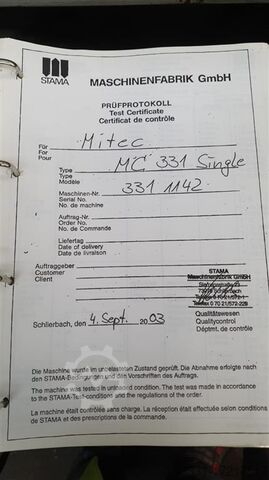 STAMA
MASCHINENFABRIK GmbH
PRÜFPROTOKOLL
Test Certificate
Certificat de contrôle
Für
For
Pour
Mitec
Type
Type
Modèle
MC 331 Single
Maschinen-Nr.
Serial No.
No. de machine
331 1142
Auftrag-Nr.
Order No.
No. de Commande
Liefertag
Date of delivery
Date de livraison
Auftraggeber
Customer
Client
STAMA
Maschinenfabrik GmbH
Schlierbach, 4. Sept. 2003
Qualitätswesen
Qualitycontrol
Déptmt. de contrôle
Die Maschine wurde im unbelasteten Zustand geprüft. Die Abnahme erfolgte nach
den STAMA-Bedingungen und den Vorschriften des Auftrags.
The machine was tested in unloaded condition. The test was made in accordance
to the STAMA-Test-conditions and the regulations of the order.
La machine était contrôlée sans charge. La réception était effectuée selon conditions
de STAMA et des prescriptions de la commande.